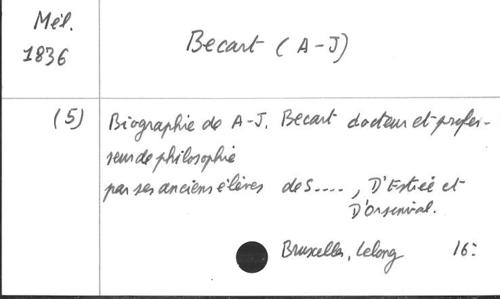 Mél.
1836
Becart (A-J)
(5) Biographie de A-J. Becart docteur et profes-
seur de philosophie
par ses anciens élèves de S...., D'Estrée et
D'Orsenval.
Bruxelles, Lelong 16: